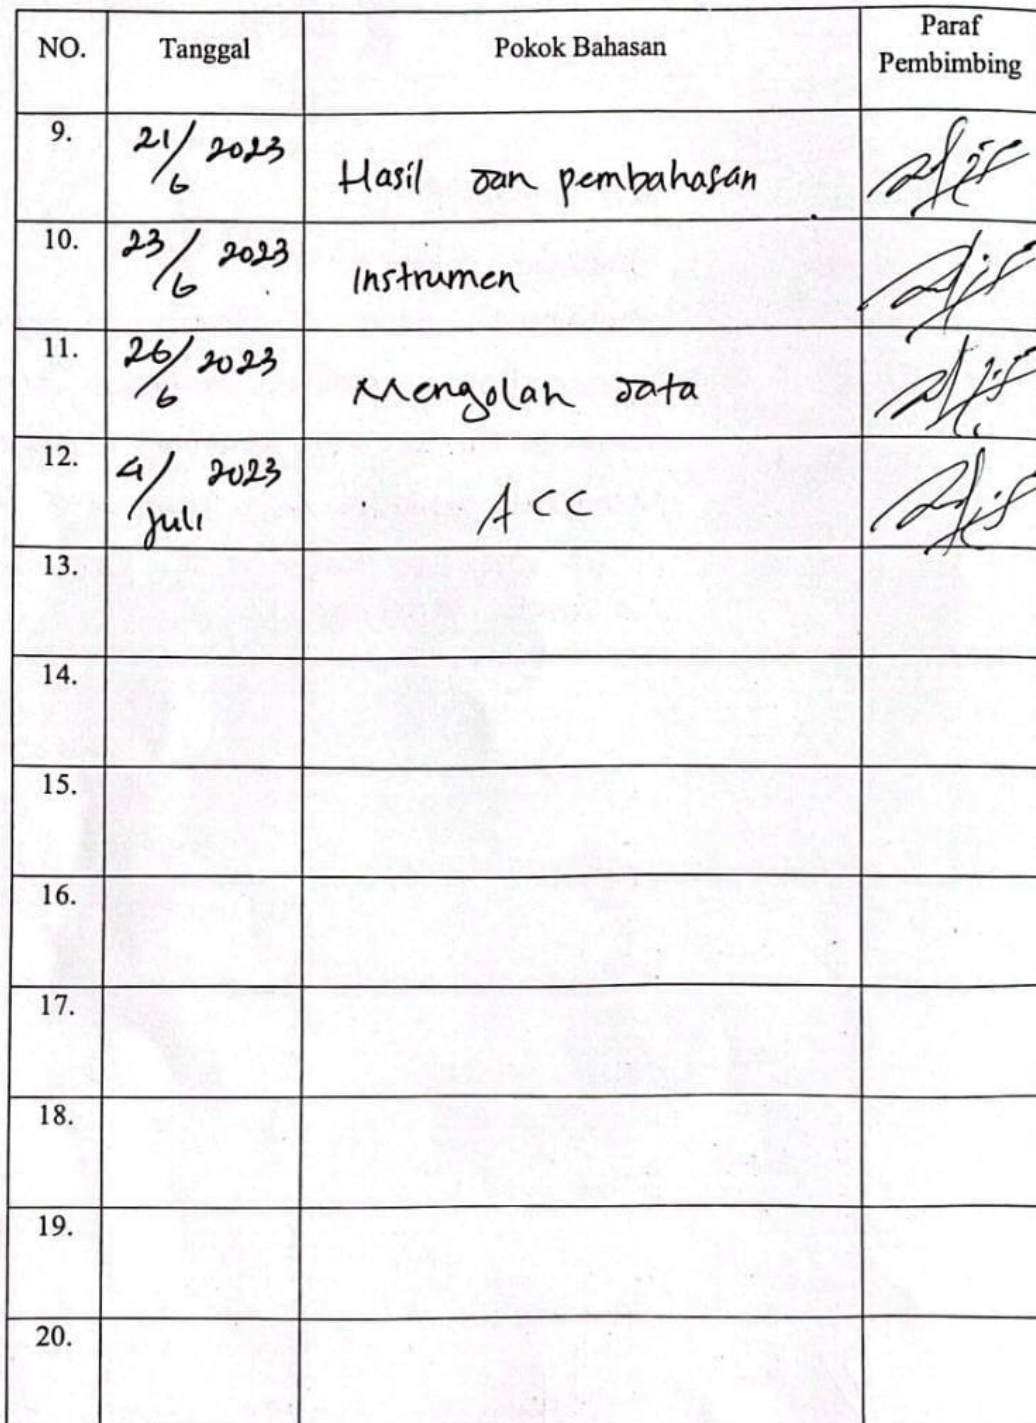 NO. Tanggal Pokok Bahasan Paraf Pembimbing
9. 21/6 2023 Hasil dan pembahasan
10. 23/6 2023 Instrumen
11. 26/6 2023 Mengolah data
12. 4/Juli 2023 ACC
13.
14.
15.
16.
17.
18.
19.
20.